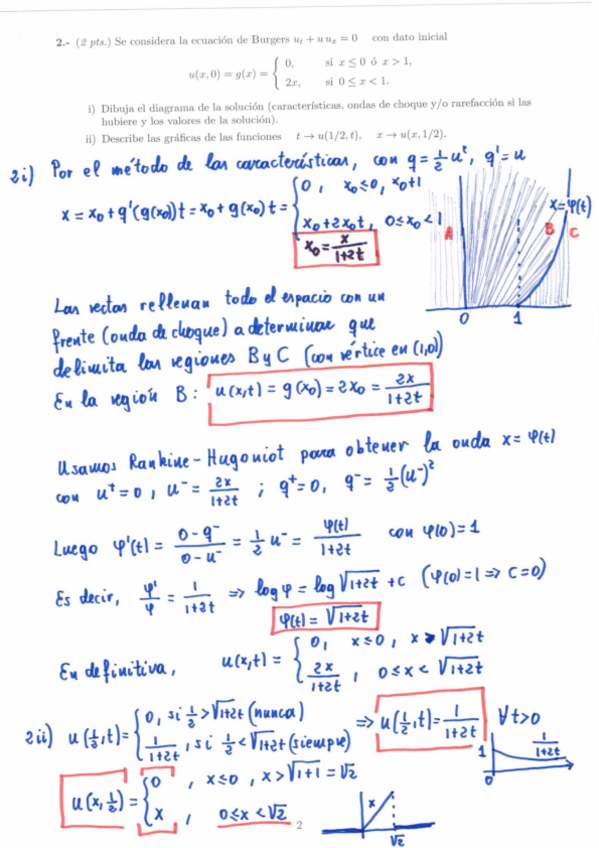 2.- (2 pts.) Se considera la ecuación de Burgers u_t + u u_x = 0 con dato inicial
u(x, 0) = g(x) = { 0, si x ≤ 0 ó x > 1,
2x, si 0 ≤ x < 1.
i) Dibuja el diagrama de la solución (características, ondas de choque y/o rarefacción si las
hubiere y los valores de la solución).
ii) Describe las gráficas de las funciones t → u(1/2, t), x → u(x, 1/2).
2i) Por el método de las características, con q = ½u², q' = u
x = x₀ + q'(g(x₀))t = x₀ + g(x₀)t = { 0, x₀≤0, x₀>1
x₀+2x₀t, 0≤x₀<1
x₀ = x/(1+2t)
x=φ(t)
A B C
0 1
Las rectas rellenan todo el espacio con un
frente (onda de choque) a determinar que
delimita las regiones B y C (con vértice en (1,0))
En la región B: u(x,t) = g(x₀) = 2x₀ = 2x/(1+2t)
Usamos Rankine-Hugoniot para obtener la onda x = φ(t)
con u⁺=0, u⁻ = 2x/(1+2t) ; q⁺=0, q⁻ = ½(u⁻)²
Luego φ'(t) = (0-q⁻)/(0-u⁻) = ½ u⁻ = φ(t)/(1+2t) con φ(0)=1
Es decir, φ'/φ = 1/(1+2t) ⇒ log φ = log √(1+2t) + c (φ(0)=1 ⇒ C=0)
φ(t) = √(1+2t)
En definitiva, u(x,t) = { 0, x≤0, x > √(1+2t)
2x/(1+2t), 0≤x<√(1+2t)
2ii) u(½,t) = { 0, si ½ > √(1+2t) (nunca)
1/(1+2t), si ½ < √(1+2t) (siempre)
⇒ u(½,t) = 1/(1+2t) ∀t>0
1 1/(1+2t)
0
u(x,½) = { 0, x≤0, x>√(1+1) = √2
x, 0≤x<√2
x
√2
2